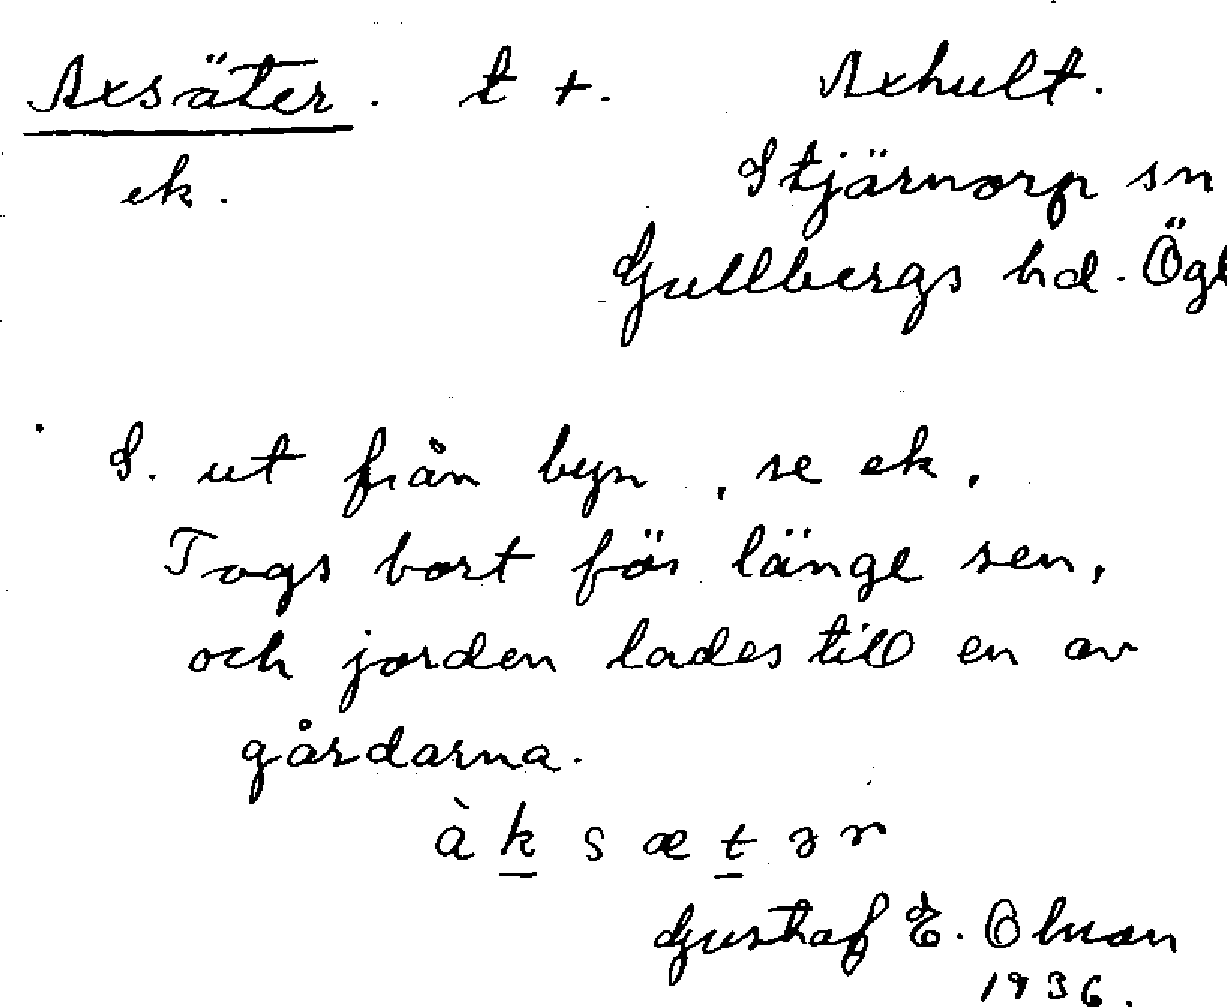 Axsäter. t +. Axhult.
ek. Stjärnorp sn
Gullbergs hd. Ögl
S. ut från byn, se ek.
Togs bort för länge sen,
och jorden lades till en av
gårdarna.
à k s æ t ə r
Gustaf E. Olsson
1936.